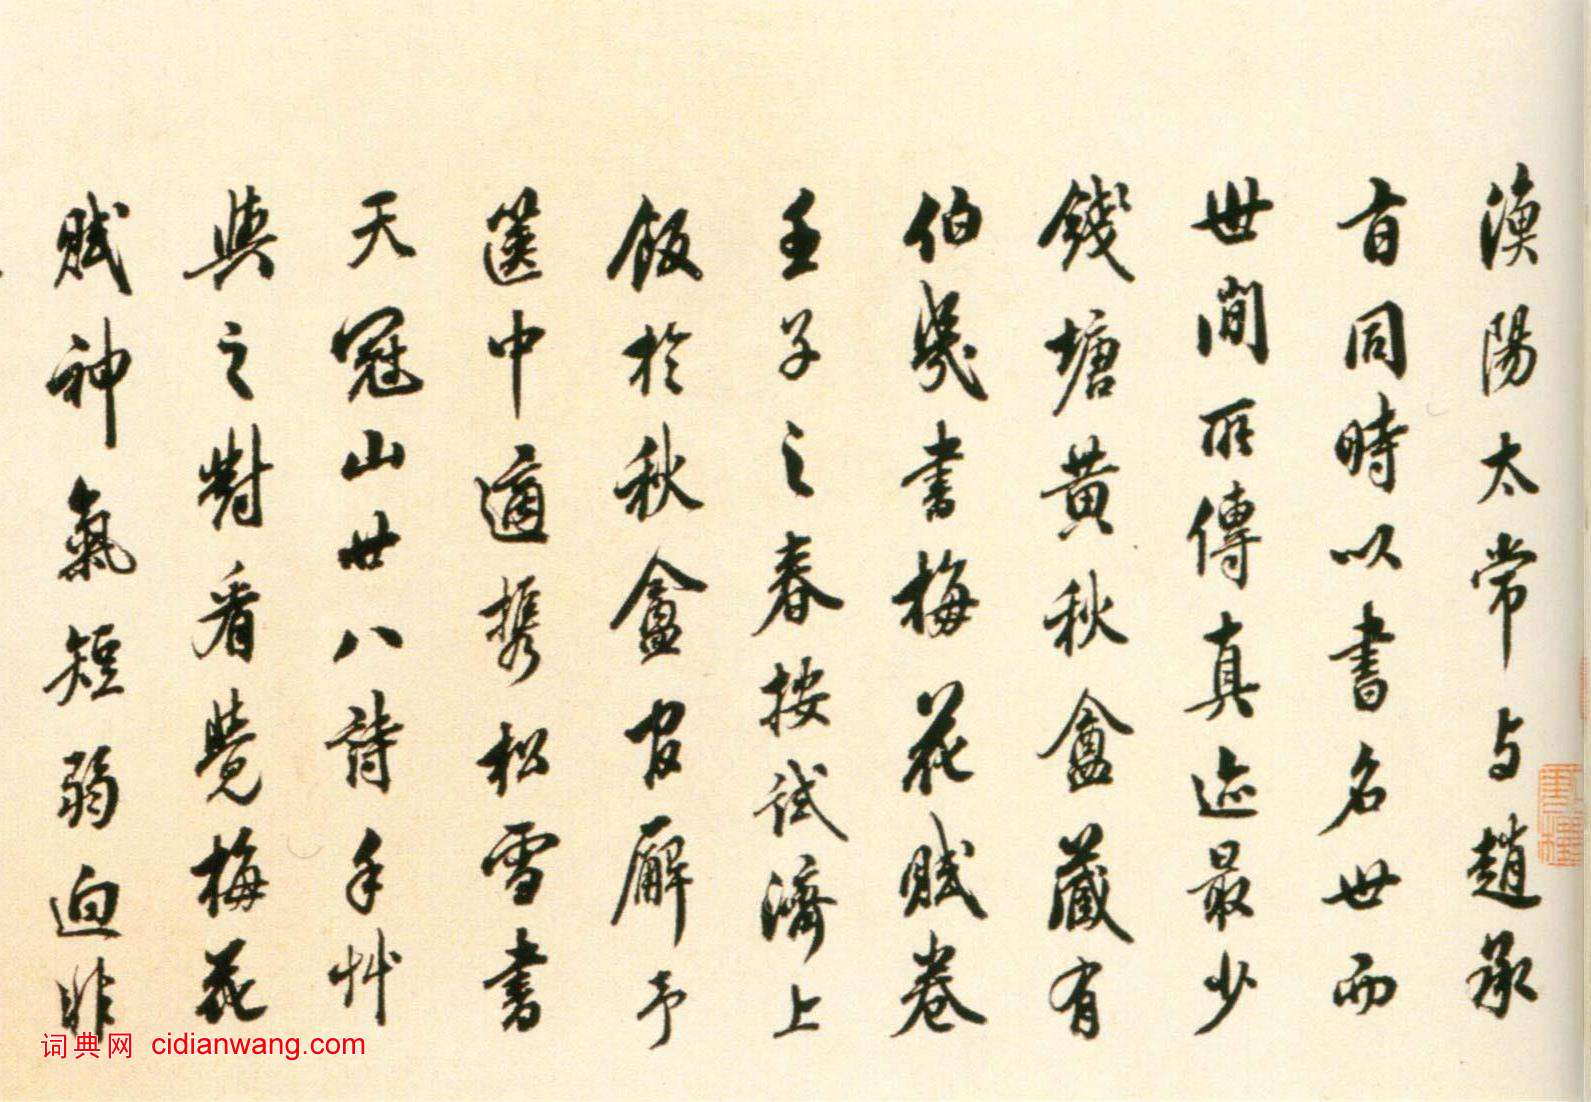 漁陽太常与趙承
旨同時以書名世而
世間所傳真迹最少
錢塘黃秋盦藏有
伯幾書梅花賦卷
壬子之春按試濟上
飯於秋盦官廨予
篋中適携松雪書
天冠山廿八詩手艸
與之對看覺梅花
賦神氣短弱迥非
词典网 cidianwang.com